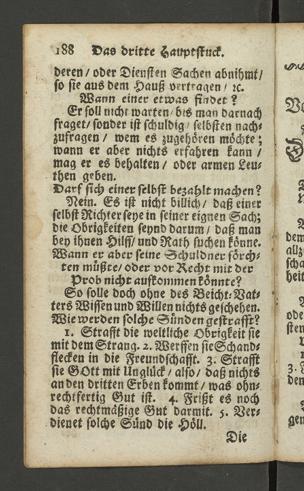 188 Das dritte Hauptstuck.
deren / oder Diensten Sachen abnihmt /
so sie aus dem Hauß vertragen / ꝛc.
Wann einer etwas findet?
Er soll nicht warten / bis man darnach
fraget / sonder ist schuldig / selbsten nach-
zufragen / wem es zugehören möchte;
wann er aber nichts erfahren kann /
mag er es behalten / oder armen Leu-
then geben.
Darf sich einer selbst bezahlt machen?
Nein. Es ist nicht billich / daß einer
selbst Richter seye in seiner eignen Sach;
die Obrigkeiten seynd darum / daß man
bey ihnen Hilff / und Rath suchen könne.
Wann er aber seine Schuldner förch-
ten müßte / oder vor Recht mit der
Prob nicht aufkommen könnte?
So solle doch ohne des Beicht-Vat-
ters Wissen und Willen nichts geschehen.
Wie werden solche Sünden gestrafft?
1. Strafft die weltliche Obrigkeit sie
mit dem Strang. 2. Werffen sie Schand-
flecken in die Freundschafft. 3. Strafft
sie GOtt mit Unglück / also / daß nichts
an den dritten Erben kommt / was ohn-
rechtfertig Gut ist. 4. Frißt es noch
das rechtmäßige Gut darmit. 5. Ver-
dienet solche Sünd die Höll.
Die